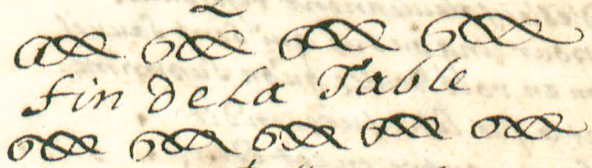 fin de La Table